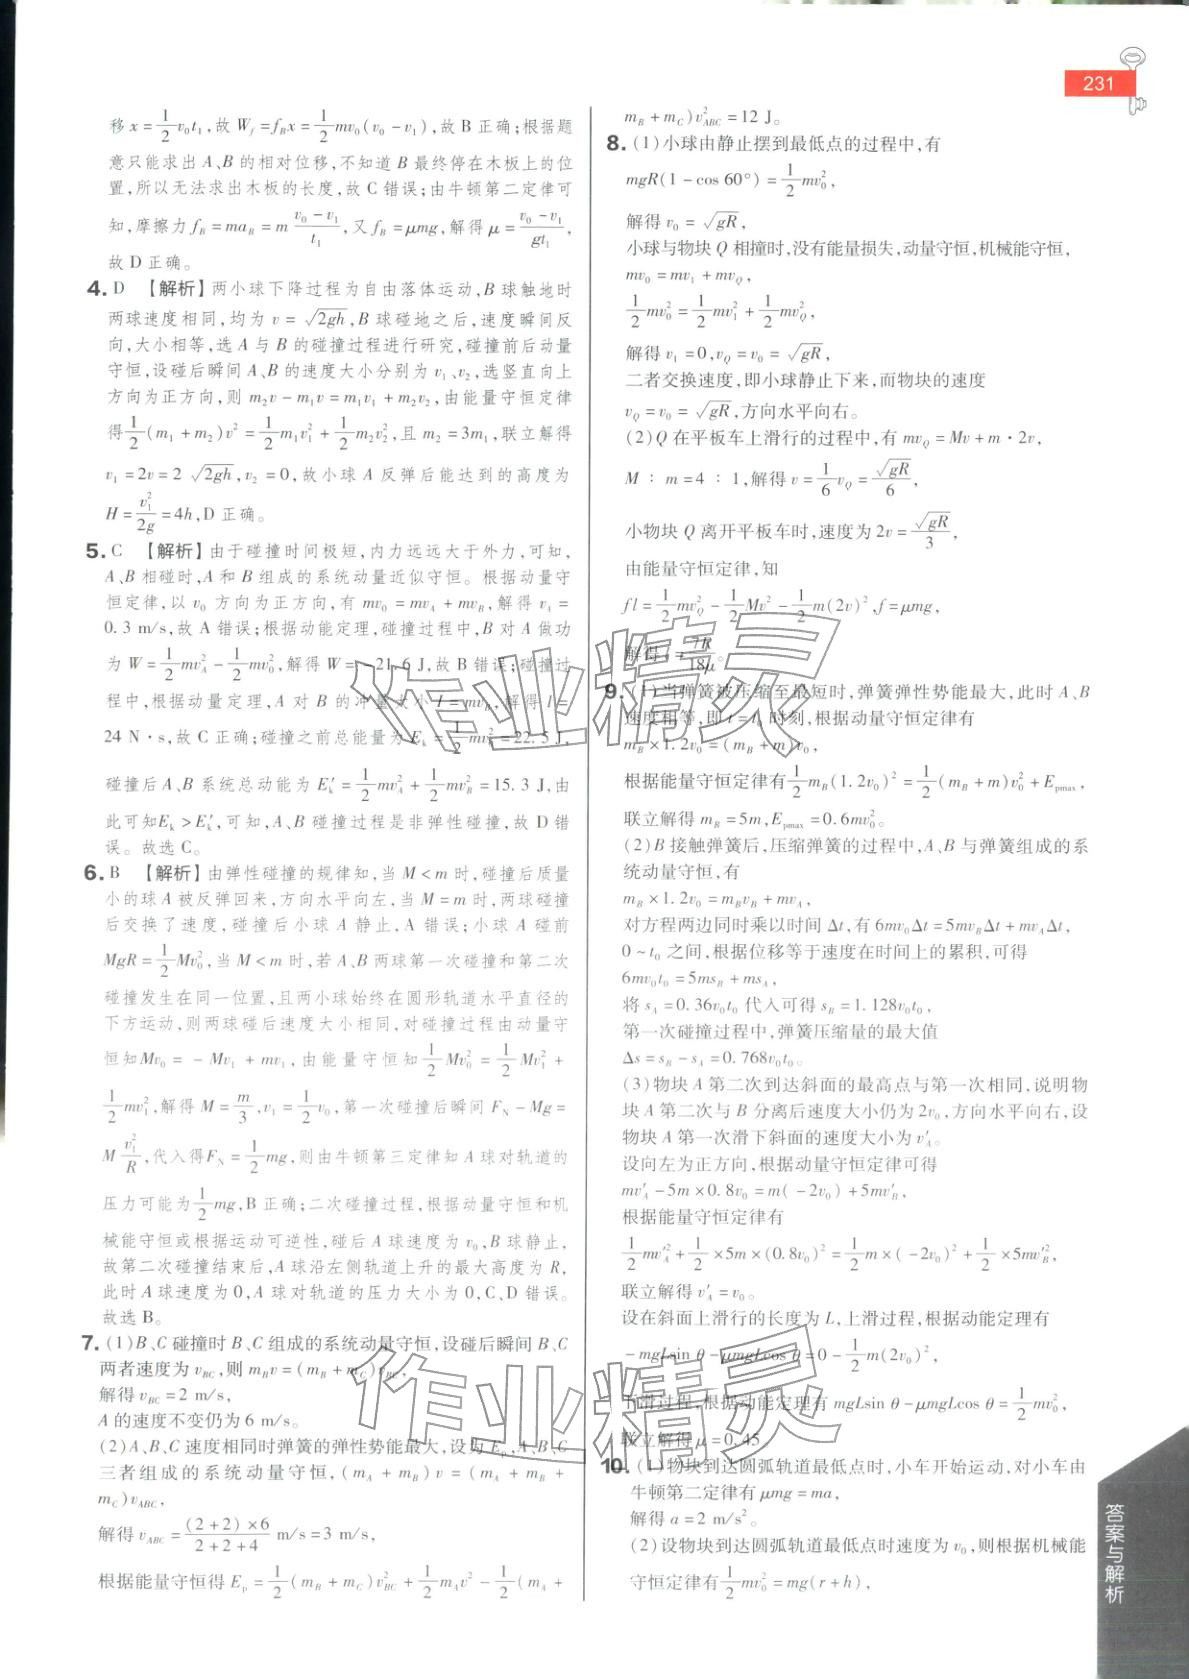 231
移 x=1/2 v₀t₁，故 W_f=f_B x=1/2 mv₀(v₀-v₁)，故 B 正确；根据题
意只能求出 A、B 的相对位移，不知道 B 最终停在木板上的位
置，所以无法求出木板的长度，故 C 错误；由牛顿第二定律可
知，摩擦力 f_B=ma_B=m (v₀-v₁)/t₁，又 f_B=μmg，解得 μ=(v₀-v₁)/(gt₁)，
故 D 正确。
4. D 【解析】两小球下降过程为自由落体运动，B 球触地时
两球速度相同，均为 v=√(2gh)，B 球碰地之后，速度瞬间反
向，大小相等，选 A 与 B 的碰撞过程进行研究，碰撞前后动量
守恒，设碰后瞬间 A、B 的速度大小分别为 v₁、v₂，选竖直向上
方向为正方向，则 m₂v-m₁v=m₁v₁+m₂v₂，由能量守恒定律
得 1/2(m₁+m₂)v²=1/2 m₁v₁²+1/2 m₂v₂²，且 m₂=3m₁，联立解得
v₁=2v=2√(2gh)，v₂=0，故小球 A 反弹后能达到的高度为
H=v₁²/(2g)=4h，D 正确。
5. C 【解析】由于碰撞时间极短，内力远远大于外力，可知，
A、B 相碰时，A 和 B 组成的系统动量近似守恒。根据动量守
恒定律，以 v₀ 方向为正方向，有 mv₀=mv_A+mv_B，解得 v_A=
0.3 m/s，故 A 错误；根据动能定理，碰撞过程中，B 对 A 做功
为 W=1/2 mv_A²-1/2 mv₀²，解得 W=-21.6 J，故 B 错误；碰撞过
程中，根据动量定理，A 对 B 的冲量大小 I=mv_B，解得 I=
24 N·s，故 C 正确；碰撞之前总能量为 E_k=1/2 mv₀²=22.5 J，
碰撞后 A、B 系统总动能为 E_k′=1/2 mv_A²+1/2 mv_B²=15.3 J，由
此可知 E_k>E_k′，可知，A、B 碰撞过程是非弹性碰撞，故 D 错
误。故选 C。
6. B 【解析】由弹性碰撞的规律知，当 M<m 时，碰撞后质量
小的球 A 被反弹回来，方向水平向左，当 M=m 时，两球碰撞
后交换了速度，碰撞后小球 A 静止，A 错误；小球 A 碰前
MgR=1/2 Mv₀²，当 M<m 时，若 A、B 两球第一次碰撞和第二次
碰撞发生在同一位置，且两小球始终在圆形轨道水平直径的
下方运动，则两球碰后速度大小相同，对碰撞过程由动量守
恒知 Mv₀=-Mv₁+mv₁，由能量守恒知 1/2 Mv₀²=1/2 Mv₁²+
1/2 mv₁²，解得 M=m/3，v₁=1/2 v₀，第一次碰撞后瞬间 F_N-Mg=
M v₁²/R，代入得 F_N=1/2 mg，则由牛顿第三定律知 A 球对轨道的
压力可能为 1/2 mg，B 正确；二次碰撞过程，根据动量守恒和机
械能守恒或根据运动可逆性，碰后 A 球速度为 v₀，B 球静止，
故第二次碰撞结束后，A 球沿左侧轨道上升的最大高度为 R，
此时 A 球速度为 0，A 球对轨道的压力大小为 0，C、D 错误。
故选 B。
7. (1)B、C 碰撞时 B、C 组成的系统动量守恒，设碰后瞬间 B、C
两者速度为 v_BC，则 m_B v=(m_B+m_C)v_BC，
解得 v_BC=2 m/s，
A 的速度不变仍为 6 m/s。
(2)A、B、C 速度相同时弹簧的弹性势能最大，设为 E_p，A、B、C
三者组成的系统动量守恒，(m_A+m_B)v=(m_A+m_B+
m_C)v_ABC，
解得 v_ABC=(2+2)×6/(2+2+4) m/s=3 m/s，
根据能量守恒得 E_p=1/2(m_B+m_C)v_BC²+1/2 m_A v²-1/2(m_A+
m_B+m_C)v_ABC²=12 J。
8. (1)小球由静止摆到最低点的过程中，有
mgR(1-cos 60°)=1/2 mv₀²，
解得 v₀=√(gR)，
小球与物块 Q 相撞时，没有能量损失，动量守恒，机械能守恒，
mv₀=mv₁+mv_Q，
1/2 mv₀²=1/2 mv₁²+1/2 mv_Q²，
解得 v₁=0，v_Q=v₀=√(gR)，
二者交换速度，即小球静止下来，而物块的速度
v_Q=v₀=√(gR)，方向水平向右。
(2)Q 在平板车上滑行的过程中，有 mv_Q=Mv+m·2v，
M∶m=4∶1，解得 v=1/6 v_Q=√(gR)/6，
小物块 Q 离开平板车时，速度为 2v=√(gR)/3，
由能量守恒定律，知
fl=1/2 mv_Q²-1/2 Mv²-1/2 m(2v)²，f=μmg，
解得 l=7R/(18μ)。
9. (1)当弹簧被压缩至最短时，弹簧弹性势能最大，此时 A、B
速度相等，即 t=t₀ 时刻，根据动量守恒定律有
m_B×1.2v₀=(m_B+m)v₀，
根据能量守恒定律有 1/2 m_B(1.2v₀)²=1/2(m_B+m)v₀²+E_pmax，
联立解得 m_B=5m，E_pmax=0.6mv₀²。
(2)B 接触弹簧后，压缩弹簧的过程中，A、B 与弹簧组成的系
统动量守恒，有
m_B×1.2v₀=m_B v_B+mv_A，
对方程两边同时乘以时间 Δt，有 6mv₀Δt=5mv_BΔt+mv_AΔt，
0~t₀ 之间，根据位移等于速度在时间上的累积，可得
6mv₀t₀=5ms_B+ms_A，
将 s_A=0.36v₀t₀ 代入可得 s_B=1.128v₀t₀，
第一次碰撞过程中，弹簧压缩量的最大值
Δs=s_B-s_A=0.768v₀t₀。
(3)物块 A 第二次到达斜面的最高点与第一次相同，说明物
块 A 第二次与 B 分离后速度大小仍为 2v₀，方向水平向右，设
物块 A 第一次滑下斜面的速度大小为 v_A′。
设向左为正方向，根据动量守恒定律可得
mv_A′-5m×0.8v₀=m(-2v₀)+5mv_B′，
根据能量守恒定律有
1/2 mv_A′²+1/2×5m×(0.8v₀)²=1/2 m×(-2v₀)²+1/2×5mv_B′²，
联立解得 v_A′=v₀。
设在斜面上滑行的长度为 L，上滑过程，根据动能定理有
-mgLsin θ-μmgLcos θ=0-1/2 m(2v₀)²，
下滑过程，根据动能定理有 mgLsin θ-μmgLcos θ=1/2 mv₀²，
联立解得 μ=0.45
10. (1)物块到达圆弧轨道最低点时，小车开始运动，对小车由
牛顿第二定律有 μmg=ma，
解得 a=2 m/s²。
(2)设物块到达圆弧轨道最低点时速度为 v₀，则根据机械能
守恒定律有 1/2 mv₀²=mg(r+h)，
答案与解析
作业精灵
作业精灵